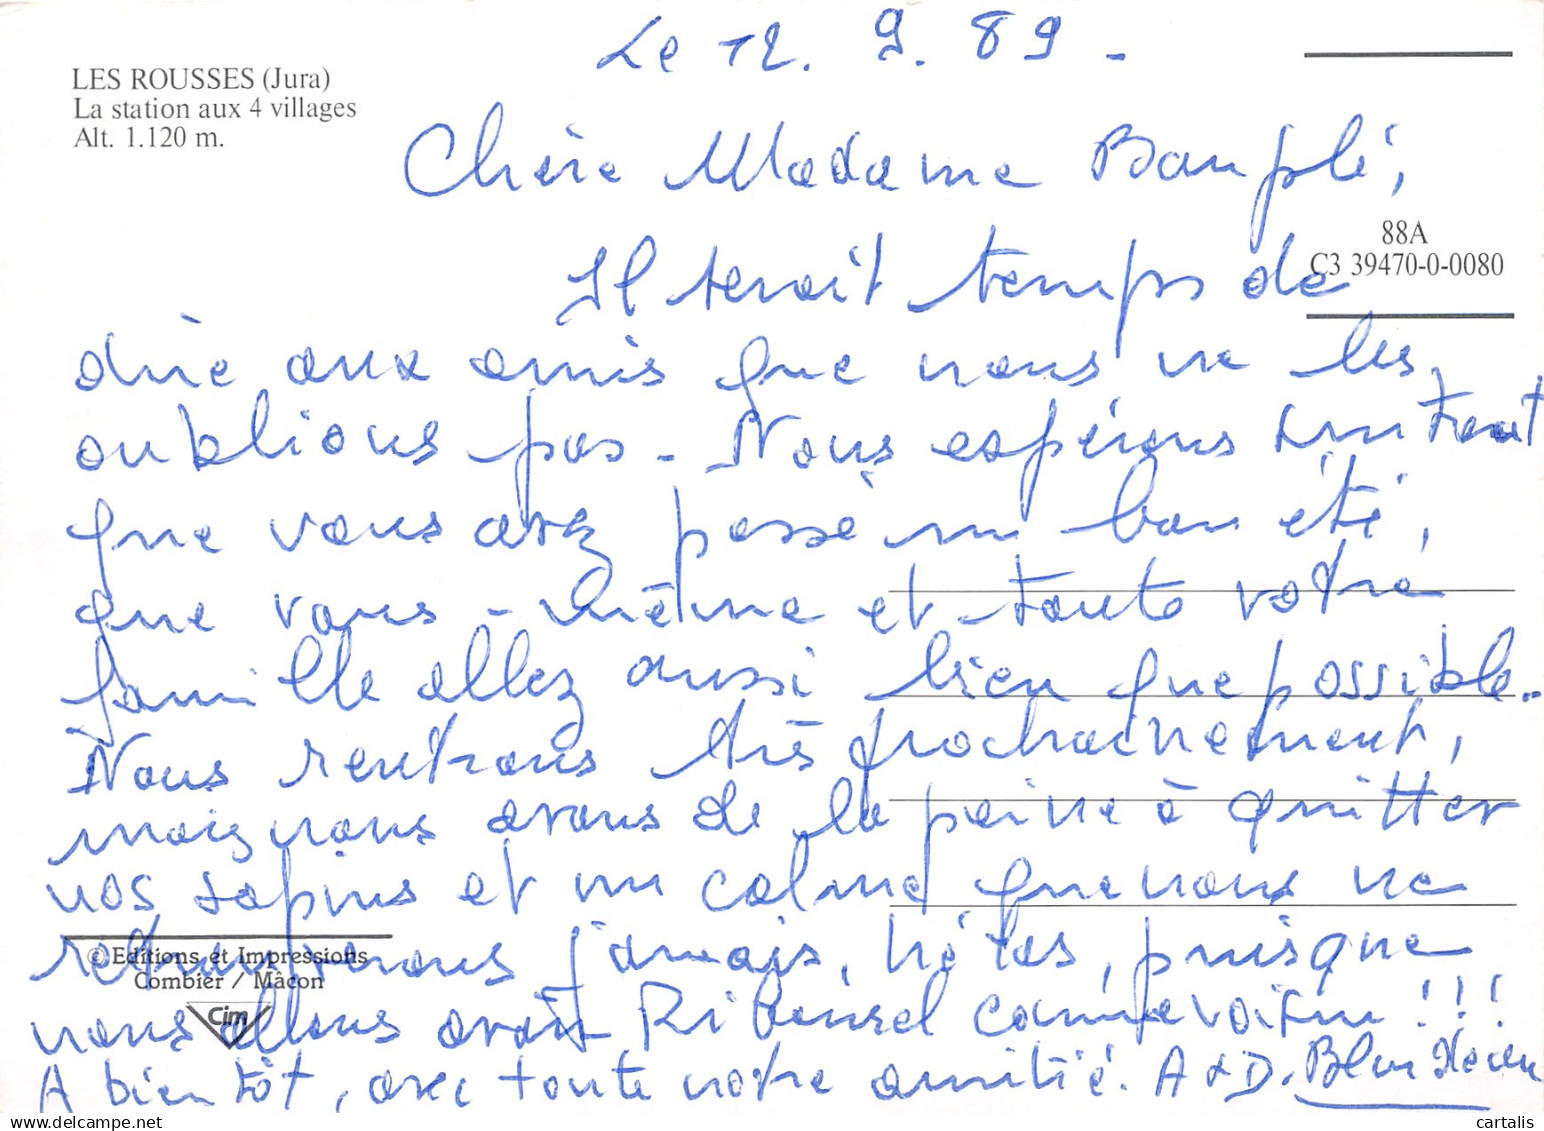 LES ROUSSES (Jura)
La station aux 4 villages
Alt. 1.120 m.
Le 12. 9. 89 -
Chère Madame Bauplé,
88A
C3 39470-0-0080
Il serait temps de
dire aux amis que nous ne les
oublions pas - Nous espérons surtout
que vous avez passé un bon été,
que vous-même et toute votre
famille allez aussi bien que possible..
Nous rentrons très prochainement,
mais nous avons de la peine à quitter
nos sapins et un calme que nous ne
retrouverons jamais, hélas, puisque
nous allons avoir comme voisin !!!
A bientôt, avec toute notre amitié. A & D.
© Editions et Impressions
Combier / Mâcon
Cim
cartalis